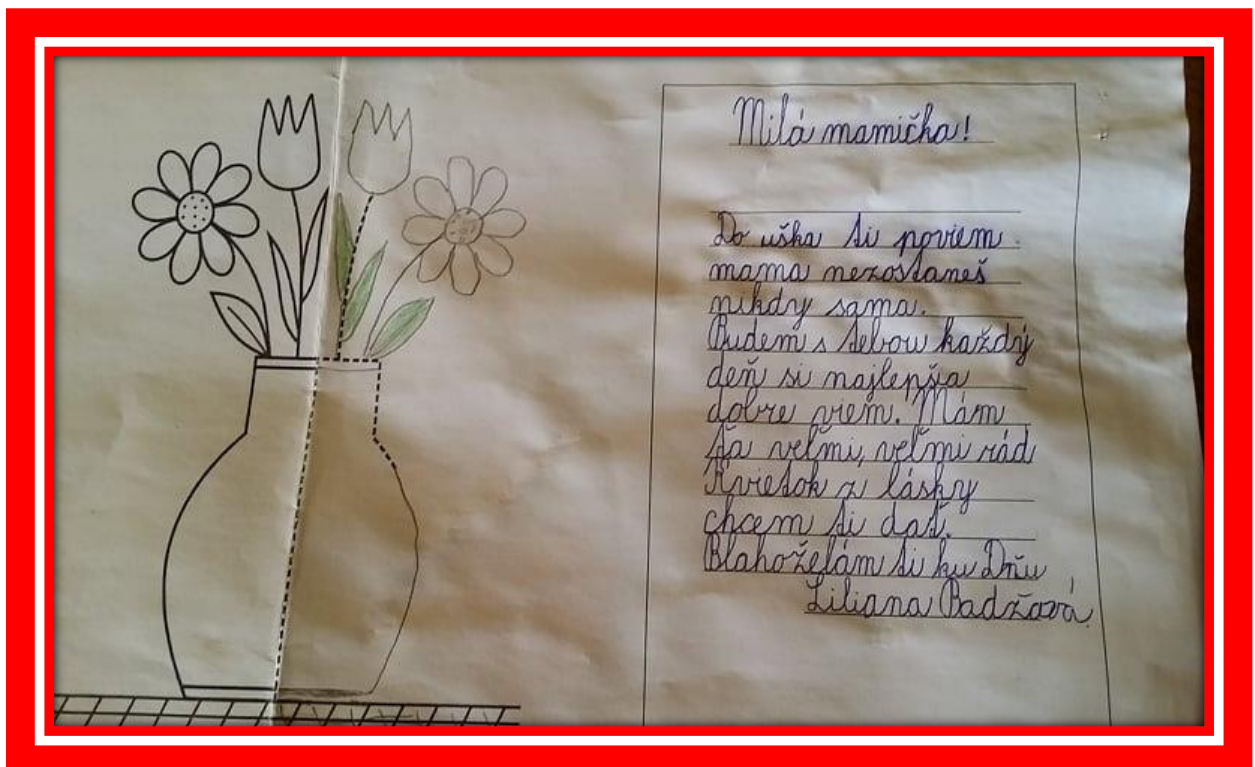 Milá mamička!
Do uška ti poviem
mama nezostaneš
nikdy sama.
Budem s tebou každý
deň si najlepšia
dobre viem. Mám
ťa veľmi, veľmi rád
Kvietok z lásky
chcem ti dať.
Blahoželám ti ku Dňu
Liliana Badžová